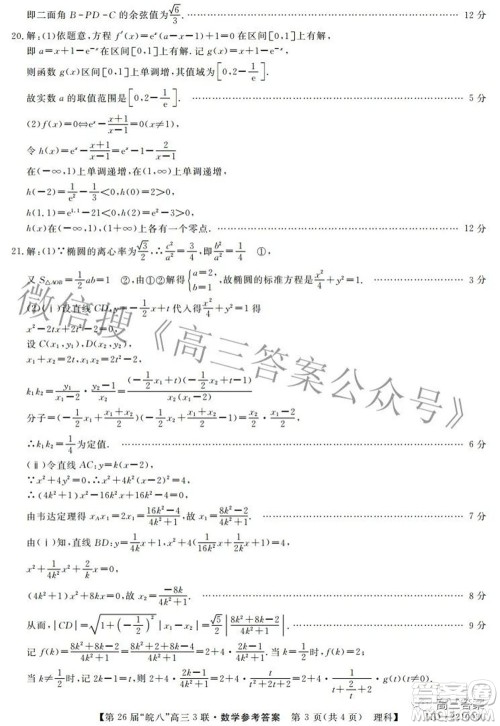 即二面角 B-PD-C 的余弦值为√6/3. …… 12 分
20.解:(1)依题意,方程 f′(x)=e^x(a-x-1)+1=0 在区间[0,1]上有解.
即 a=x+1-e^{-x}=g(x)在区间[0,1]上有解.记 g(x)=x+1-e^{-x}.
则函数 g(x)区间[0,1]上单调增,其值域为[0,2-1/e].
故实数 a 的取值范围是[0,2-1/e]. …… 5 分
(2)f(x)=0⇔e^x-(x+1)/(x-1)=0(x≠1),
令 h(x)=e^x-(x+1)/(x-1)=e^x-1-2/(x-1)
在(-∞,1)上单调递增,在(1,+∞)上单调递增,
h(-2)=1/e²-1/3<0,h(0)=2>0
h(1.1)=e^{1.1}-21<0,h(2)=e²-3>0
h(x)在(-∞,1),(1,+∞)上各有一个零点. …… 12 分
21.解:(1)∵椭圆的离心率为√3/2,∴c²/a²=3/4,即b²/a²=1/4 ①,
又 S△AOB=1/2ab=1 ②,由①②解得{a=2, b=1,故椭圆的标准方程是x²/4+y²=1. …… 3 分
(2)(ⅰ)设直线 CD:y=-1/2x+t 代入得x²/4+y²=1 得
x²-2tx+2t²-2=0,
设 C(x₁,y₁),D(x₂,y₂),
x₁+x₂=2t,x₁x₂=2t²-2,
k₁k₂=y₁/(x₁-2)·(y₂-1)/x₂=(-1/2x₁+t)(-1/2x₂+t-1)/((x₁-2)x₂)
分子=(-1/2x₁+(x₁+x₂)/2)(-1/2x₂+(x₁+x₂)/2-1)=x₂/2·(x₁-2)/2.
∴k₁k₂=1/4为定值. …… 6 分
(ⅱ)令直线 AC:y=k(x-2),
∵x²+4y²=0,∴x²+4k²(x-2)²=4,
∴(4k²+1)x²-16k²x+16k²-4=0,
由韦达定理得 x_A x₁=2x₁=(16k²-4)/(4k²+1),故 x₁=(8k²-2)/(4k²+1). …… 7 分
由(ⅰ)知,直线 BD:y=1/(4k)x+1,则 x²+4(1/(16k²)x²+1/(2k)x+1)=4,
x²+1/(4k²)x²+2/k x=0,
(4k²+1)x²+8kx=0,故 x₂=-8k/(4k²+1). …… 8 分
从而,|CD|=√(1+(-1/2)²)|x₁-x₂|=√5/2|(8k²+8k-2)/(4k²+1)|. …… 9 分
记 f(k)=(8k²+8k-2)/(4k²+1)=(8k²+2+8k-4)/(4k²+1)=2+(8k-4)/(4k²+1)=2+4·(2k-1)/(4k²+1),
当 k=1/2时,f(k)=2,当 k≠1/2时,令 2k-1=t,则 2k=t+1,
【第 26 届“皖八”高三 3 联·数学参考答案 第 3 页(共 4 页) 理科】
微信搜《高三答案公众号》